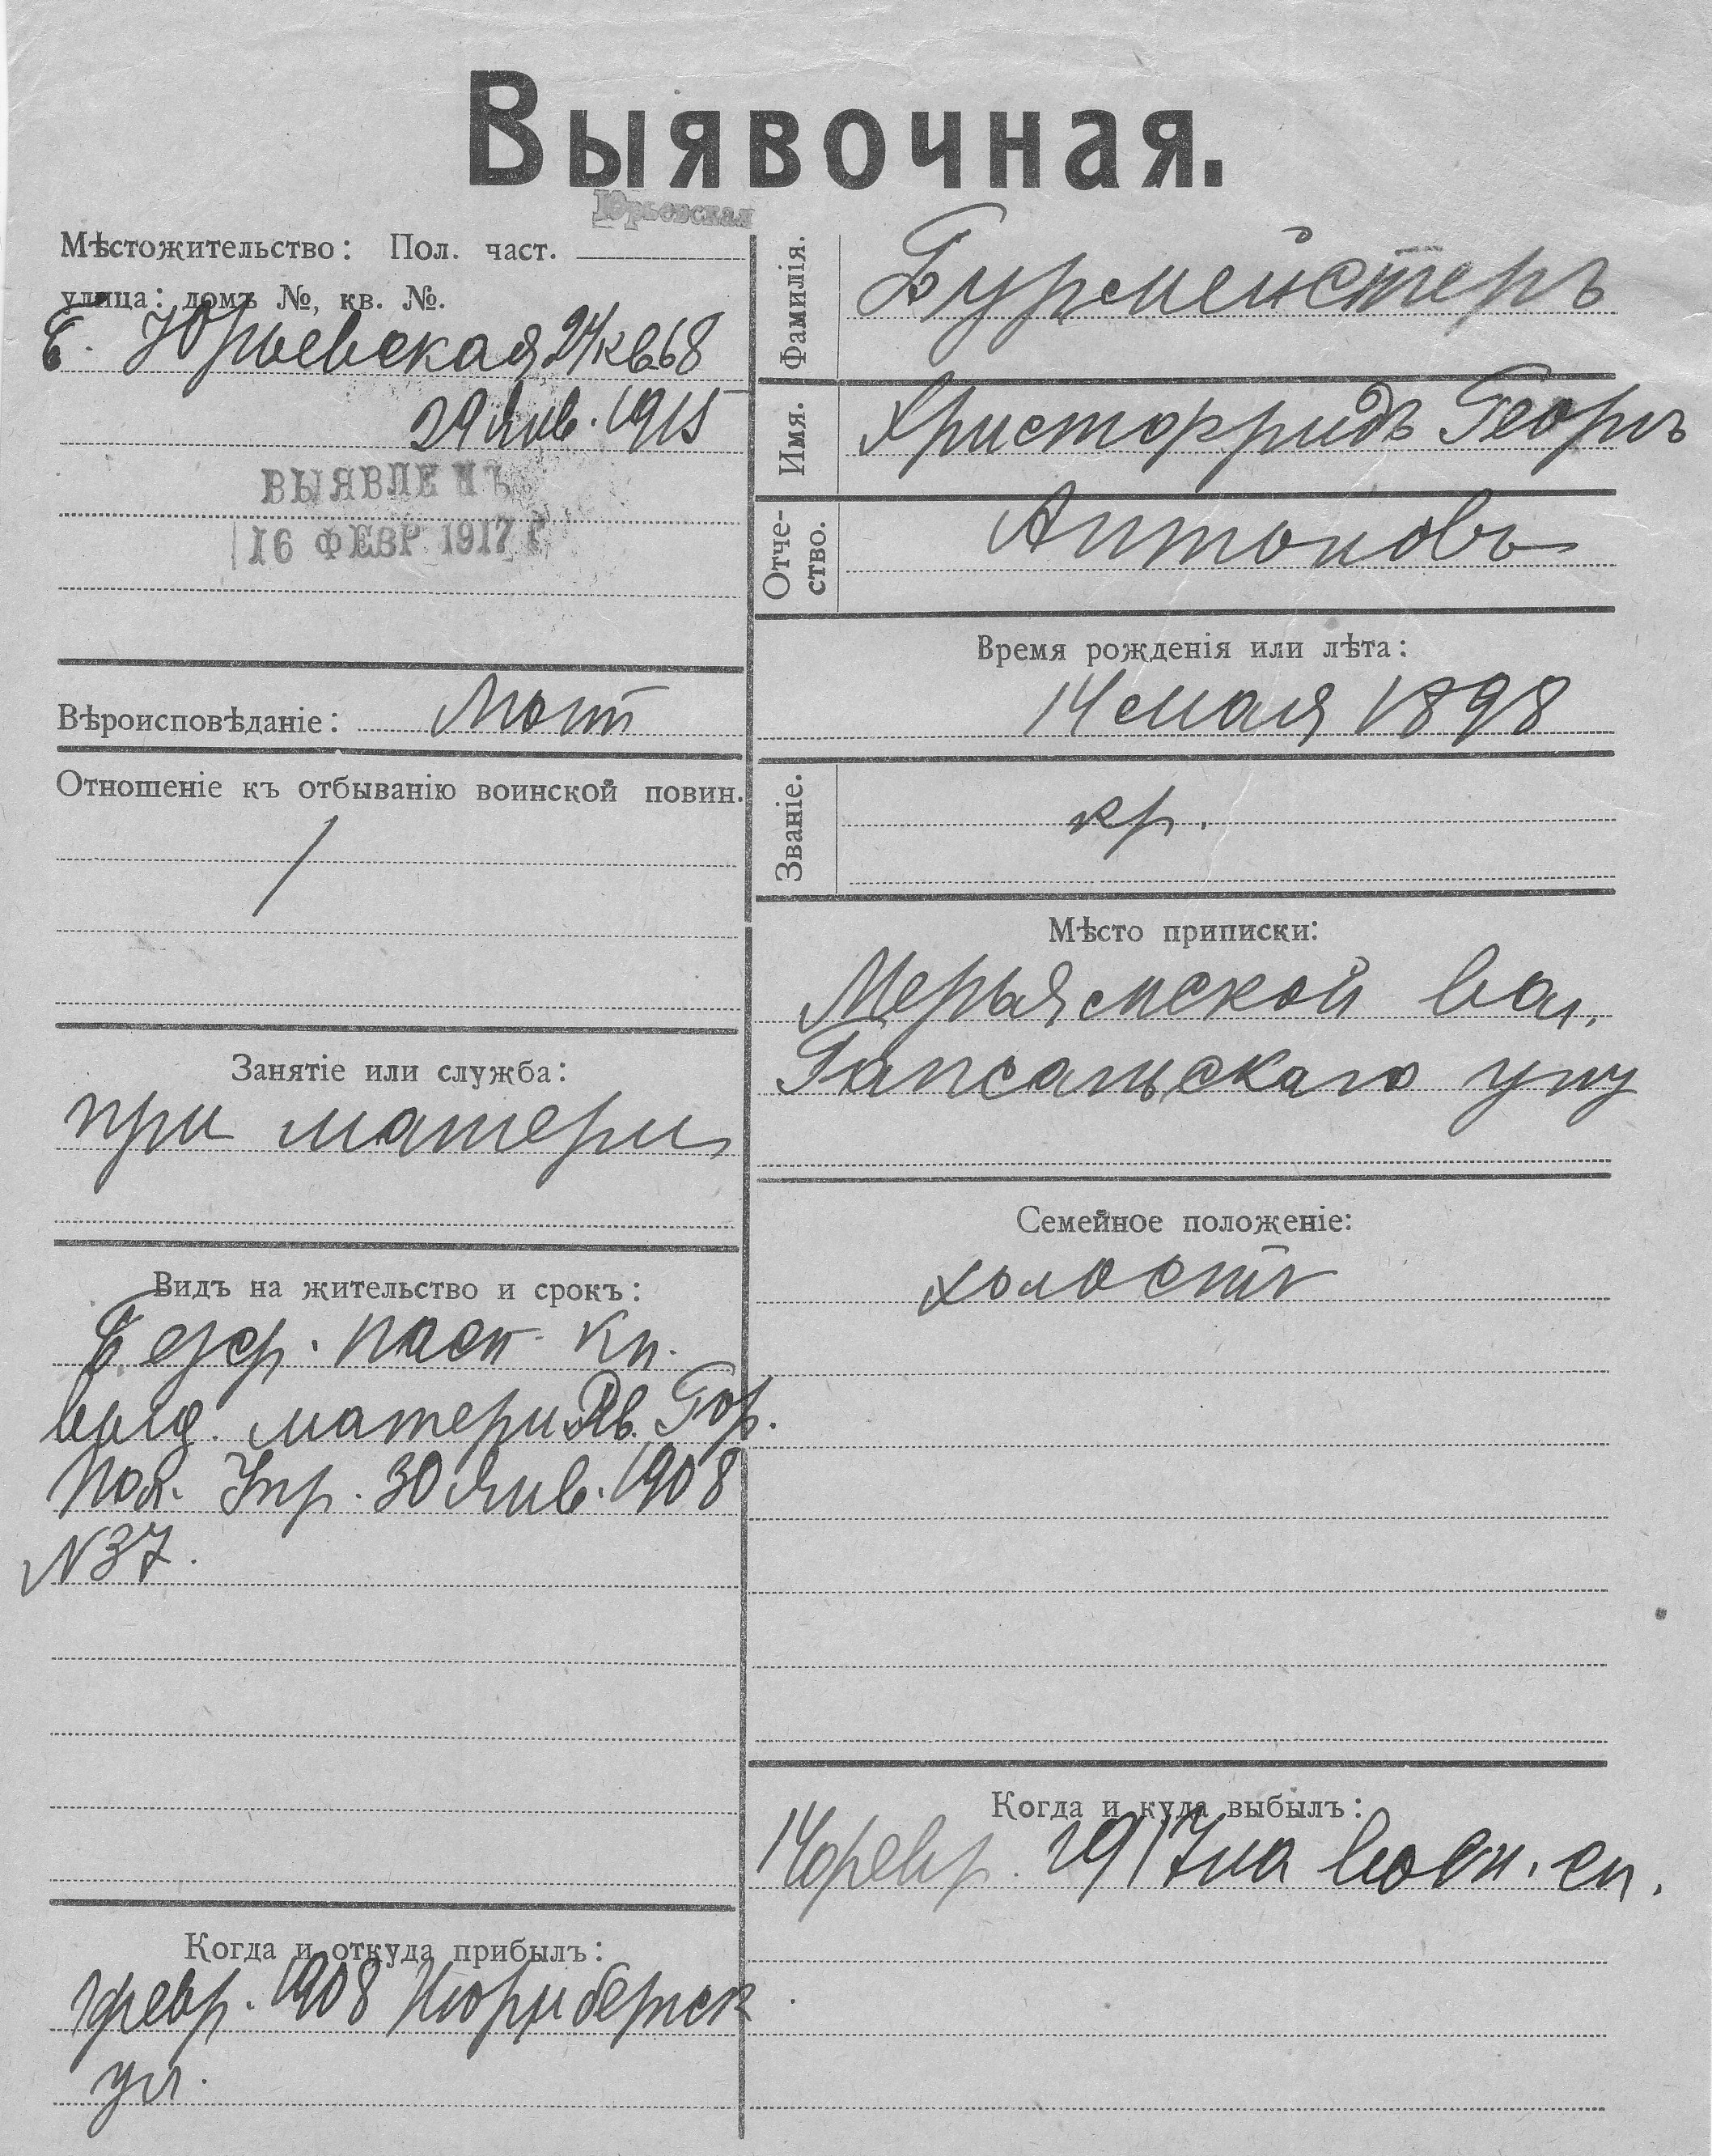 Выявочная.
Юрьевская
Мѣстожительство: Пол. част.
улица: домъ №, кв. №.
Б. Юрьевская 24 кв 68
29 Янв. 1915
ВЫЯВЛЕНЪ
16 ФЕВР 1917 Г
Вѣроисповѣданіе: Лют
Отношеніе къ отбыванію воинской повин.
Занятіе или служба:
при матери
Видъ на жительство и срокъ:
Безср. пасп. кн.
выд. матери Рв. Гор.
Пол. Упр. 30 Янв. 1908
N 37.
Когда и откуда прибылъ:
февр. 1908
ул.
Фамилія.
Бурмейстеръ
Имя.
Христофридъ Георгъ
Отче-
ство.
Антоновъ
Время рожденія или лѣта:
14 мая 1898
Званіе.
кр.
Мѣсто приписки:
Мерьямской вол.
Гапсальскаго
Семейное положеніе:
холостъ
Когда и куда выбылъ:
14 февр. 1917 на воен. сл.